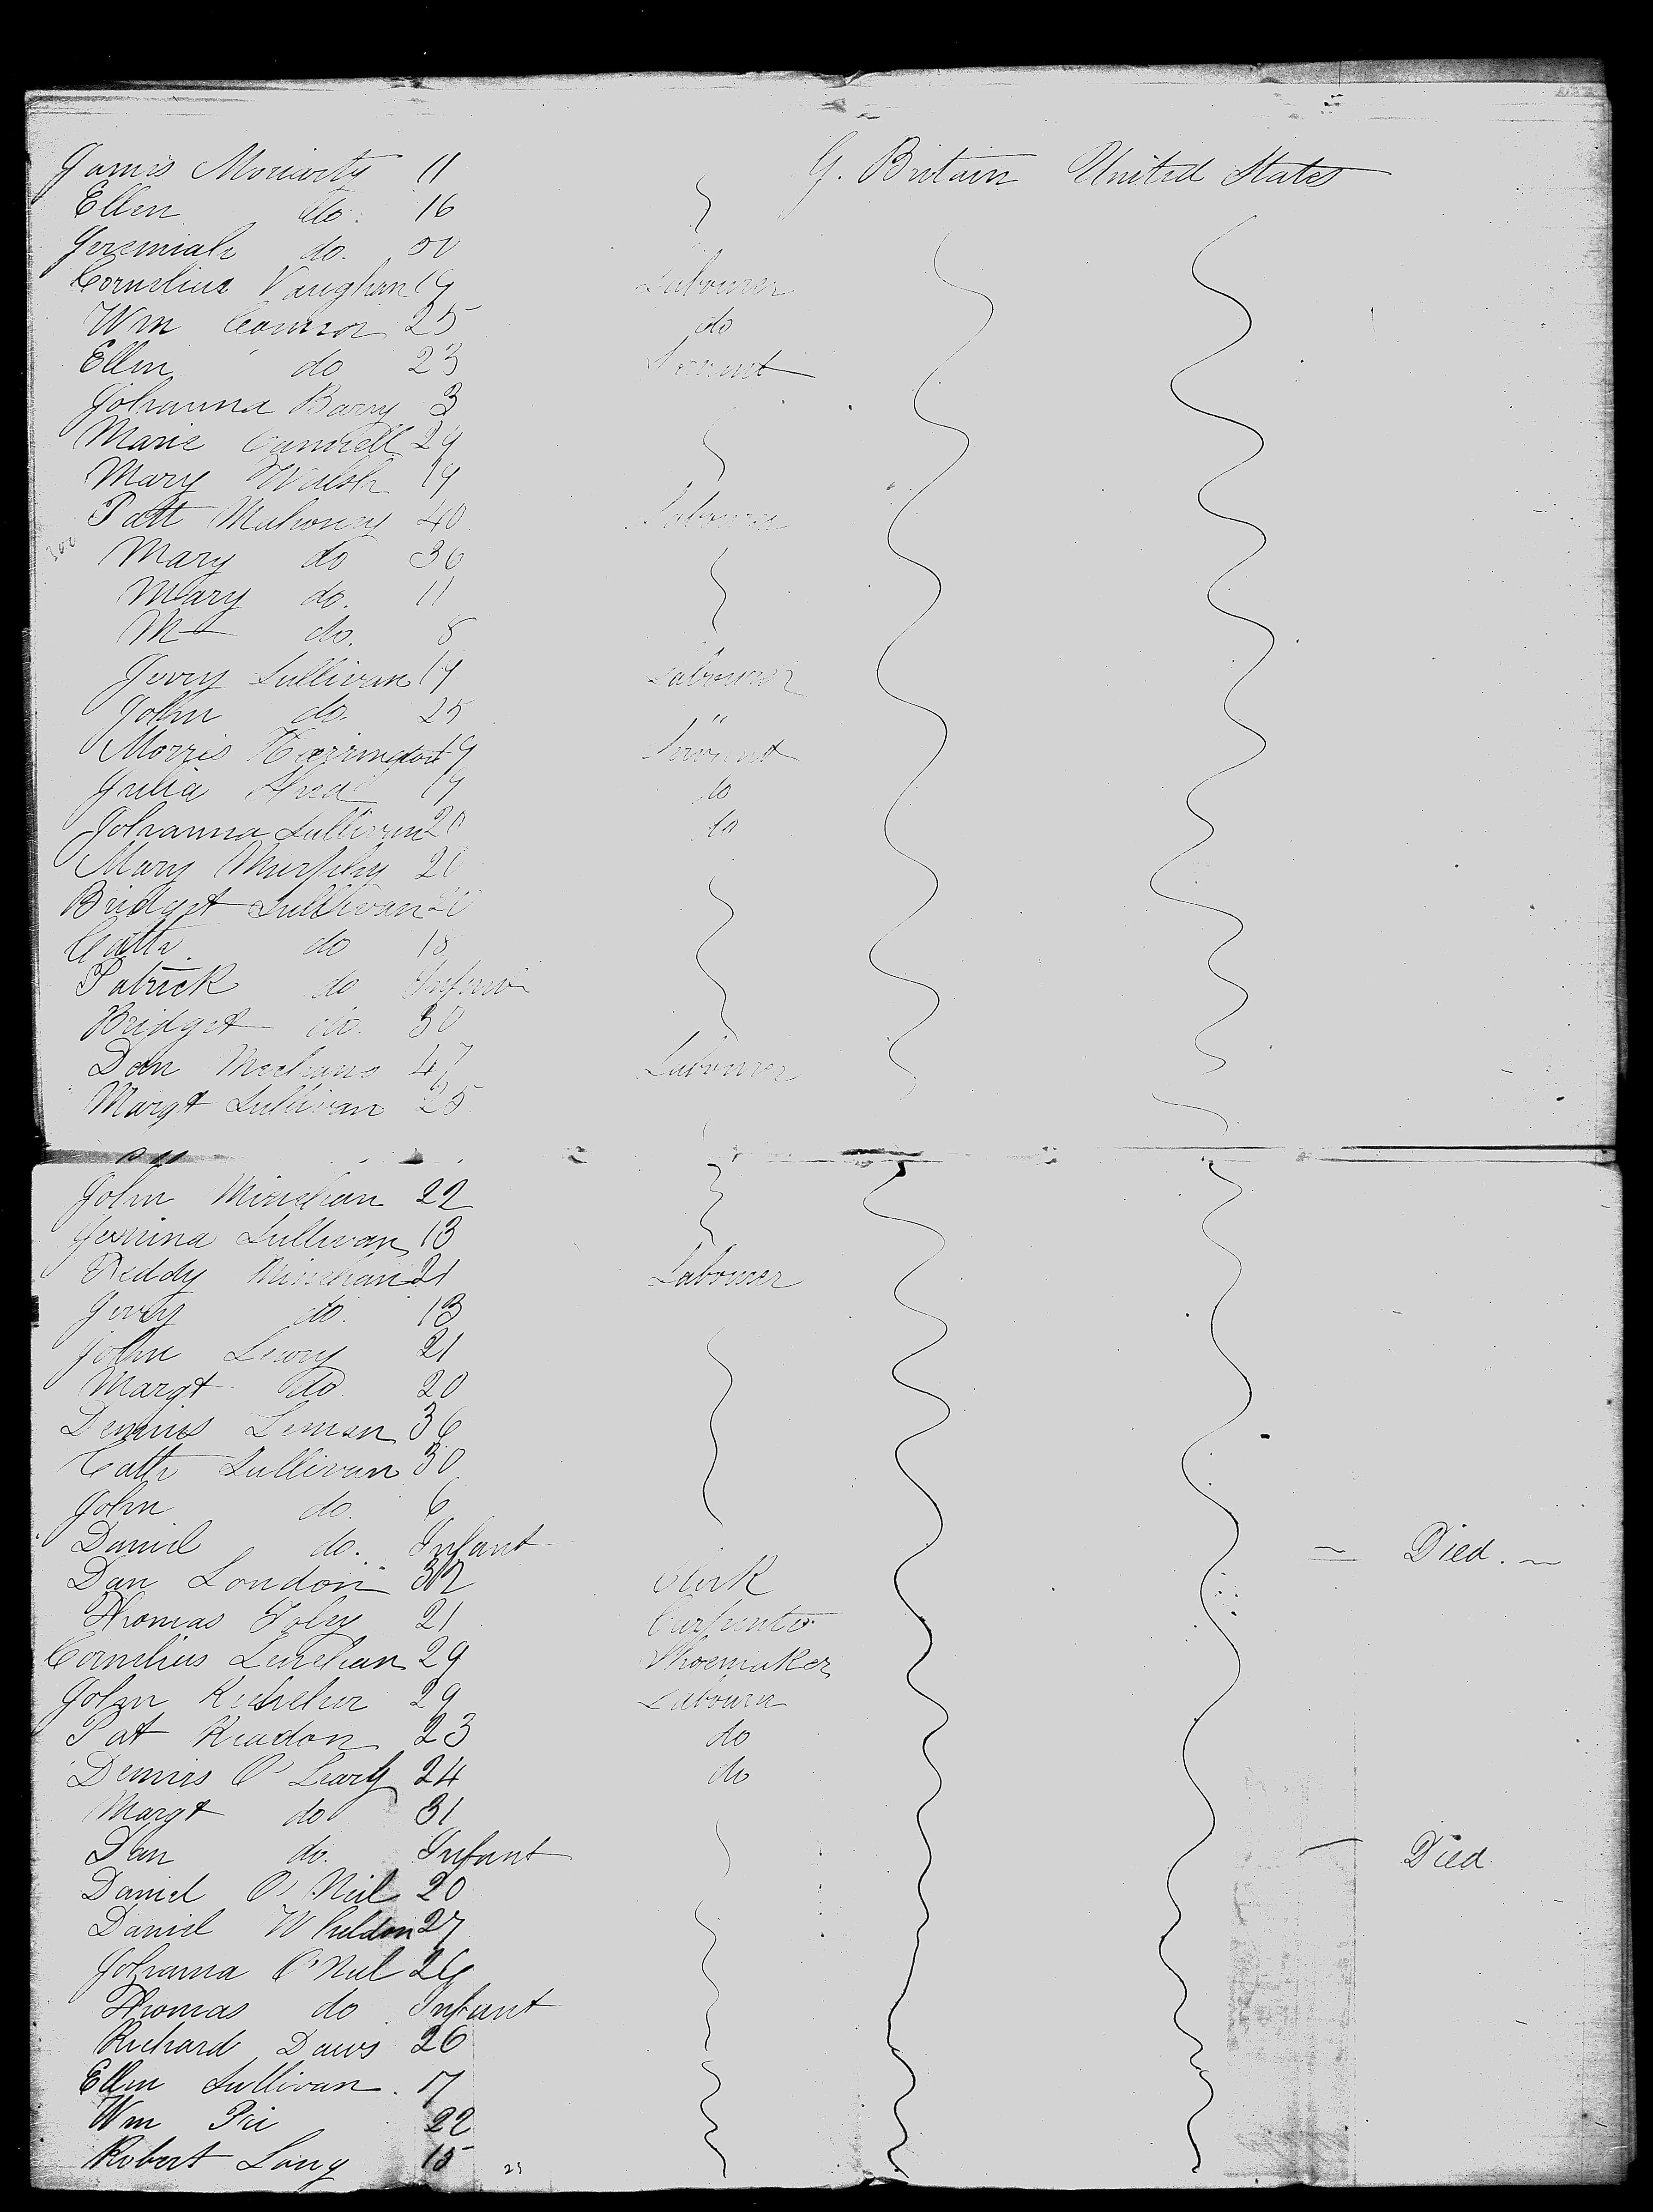 James Moriarty 11 G. Britain United States
Ellen do. 16
Jeremiah do. 50
Cornelius Vaughan 19 Labourer
Wm Connor 25 do
Ellen do 23 Servant
Johanna Barry 3
Marie 29
Mary Walsh 19
Patt Mahoney 40 Labourer
300 Mary do 36
Mary do. 11
M— do. 8
Jerry Sullivan 19 Labourer
John do. 25 "
Morris Harrington 19 Servant
Julia Shea 19 do
Johanna Sullivan 20 do
Mary Murphy 20
Bridget Sullivan 20
Cath. do 18
Patrick do Infant
Bridget do. 30
Dan 47 Labourer
Margt Sullivan 25
John Minehan 22
Sullivan 13
Reddy Minehan 21 Labourer
Jerry do. 13
John Leary 21
Margt do 20
Dennis 36
Cath Sullivan 30
John do. 6
Daniel do. Infant Died.
Dan London 32 Clerk
Thomas Foley 21 Carpenter
Cornelius Lenehan 29 Shoemaker
John 29 Labourer
Pat Readon 23 do
Dennis O'Leary 24 do
Margt do 31
Dan do. Infant Died
Daniel O'Neil 20
Daniel Wheldon 27
Johanna O'Neil 26
Thomas do Infant
Richard Daws 26
Ellen Sullivan. 17
Wm 22
Robert Long 15 25